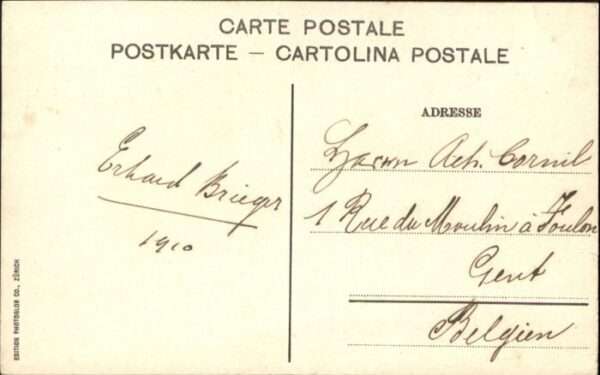 CARTE POSTALE
POSTKARTE — CARTOLINA POSTALE
ADRESSE
Erhard Brieger
1910
Herrn Ach. Cornil
1 Rue du Moulin à Foulon
Gent
Belgien
EDITION PHOTOGLOB CO., ZÜRICH